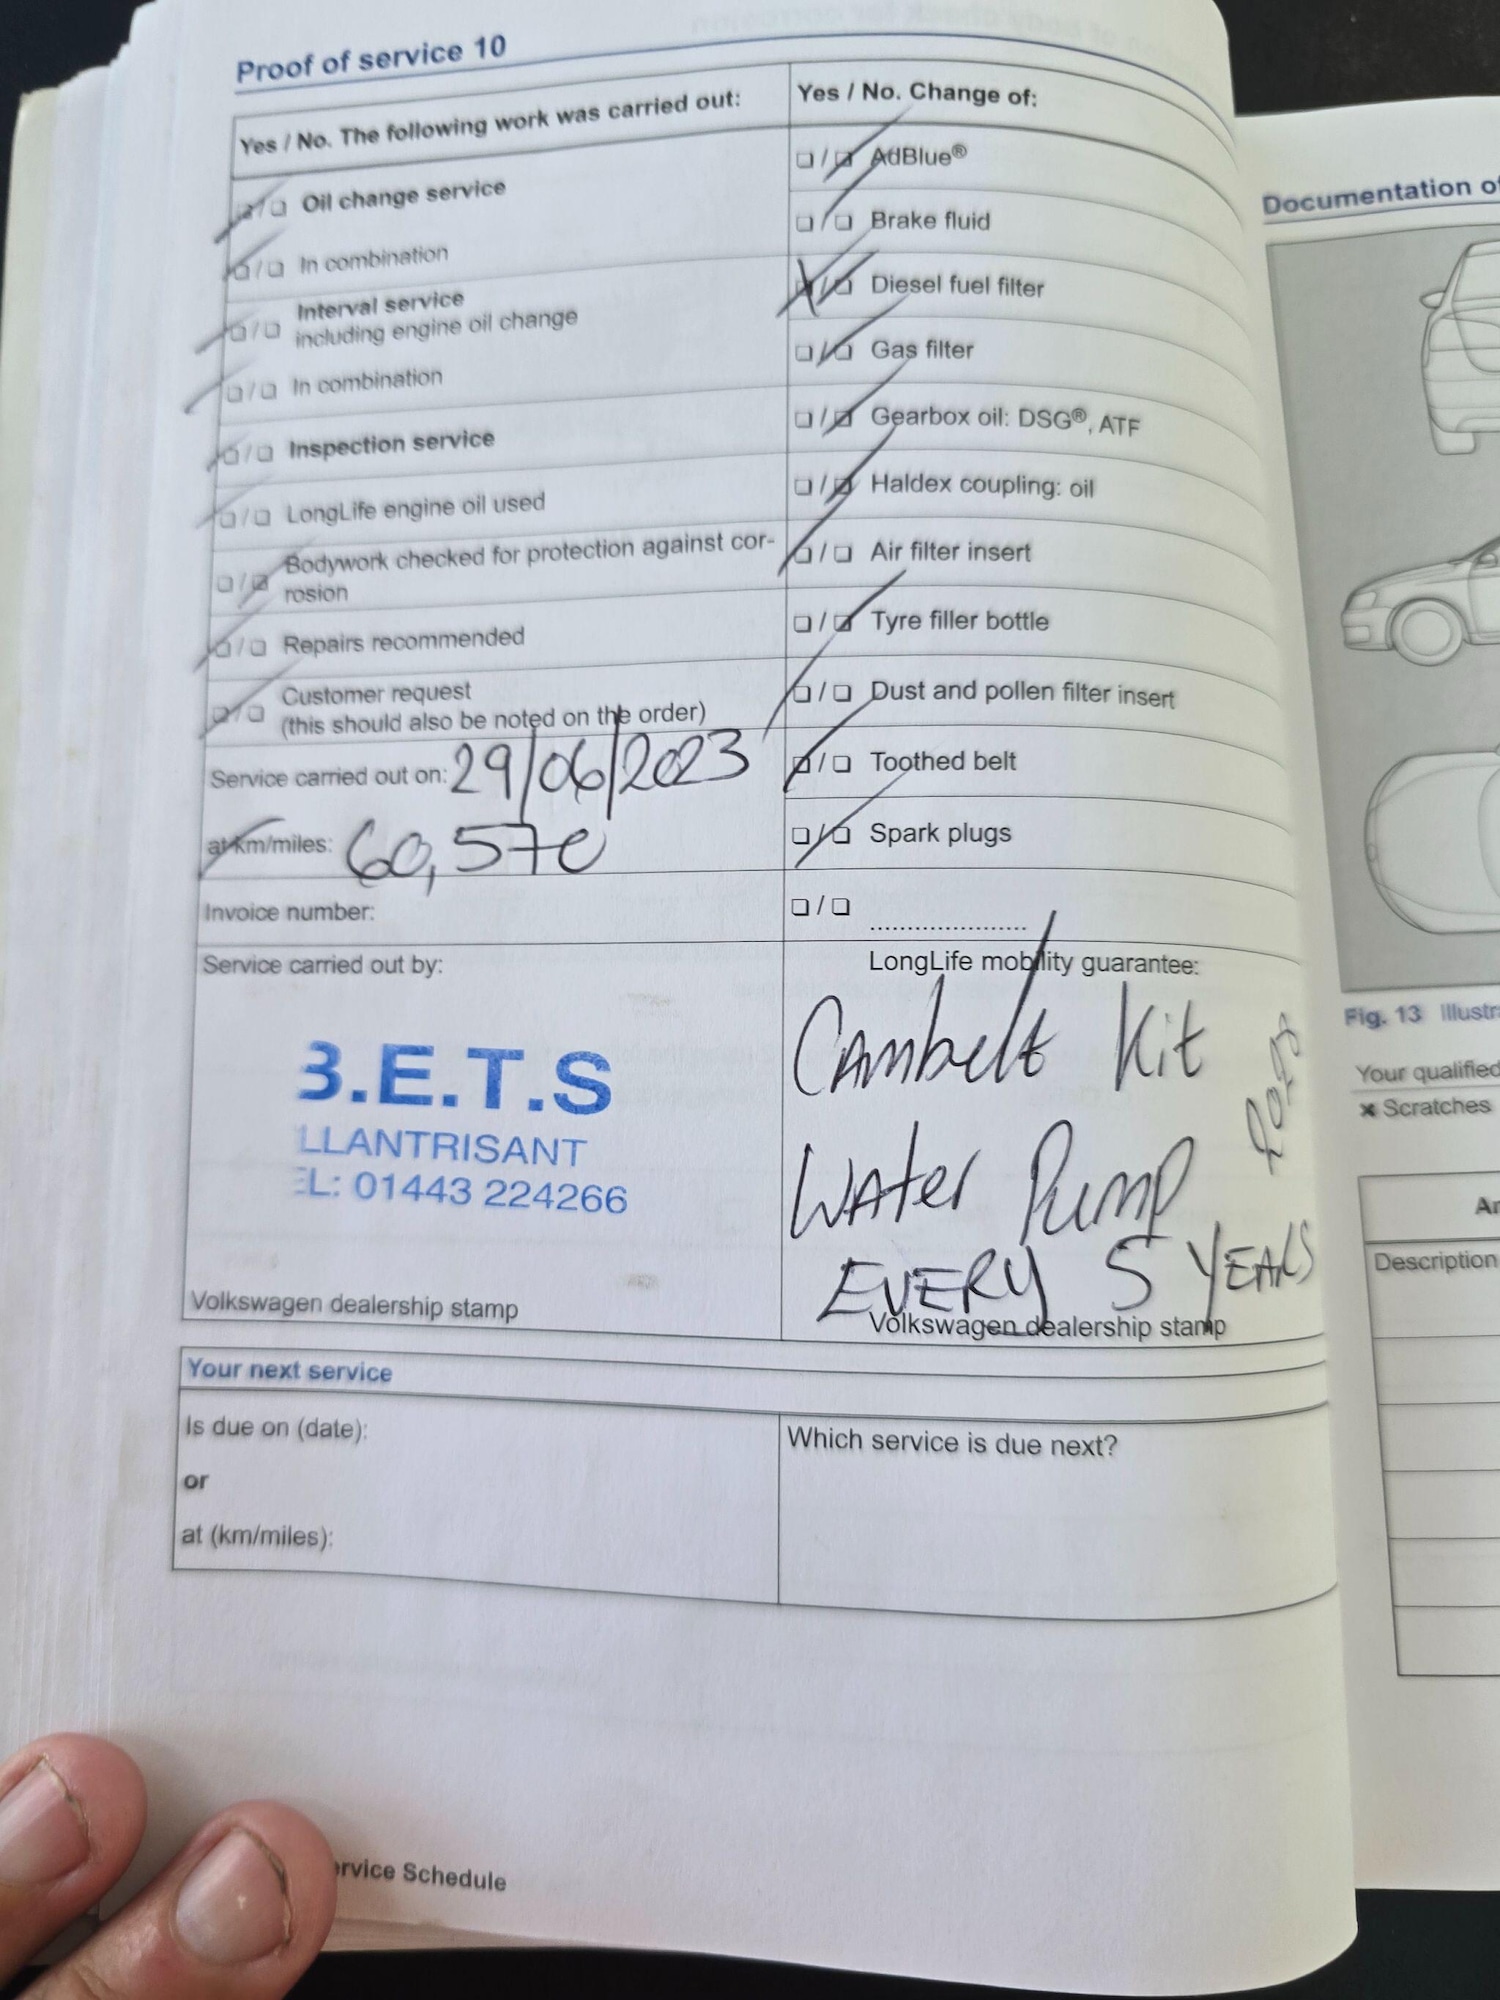 Proof of service 10
Yes / No. The following work was carried out:
❏ / ❏ Oil change service
❏ / ❏ In combination
❏ / ❏ Interval service
including engine oil change
❏ / ❏ In combination
❏ / ❏ Inspection service
❏ / ❏ LongLife engine oil used
❏ / ❏ Bodywork checked for protection against cor-
rosion
❏ / ❏ Repairs recommended
❏ / ❏ Customer request
(this should also be noted on the order)
Service carried out on: 29/06/2023
at km/miles: 60,570
Invoice number:
Service carried out by:
B.E.T.S
LLANTRISANT
EL: 01443 224266
Volkswagen dealership stamp
Yes / No. Change of:
❏ / ❏ AdBlue®
❏ / ❏ Brake fluid
❏ / ❏ Diesel fuel filter
❏ / ❏ Gas filter
❏ / ❏ Gearbox oil: DSG®, ATF
❏ / ❏ Haldex coupling: oil
❏ / ❏ Air filter insert
❏ / ❏ Tyre filler bottle
❏ / ❏ Dust and pollen filter insert
❏ / ❏ Toothed belt
❏ / ❏ Spark plugs
❏ / ❏ ......................
LongLife mobility guarantee:
Cambelt Kit
Water Pump
EVERY 5 YEARS
Volkswagen dealership stamp
Your next service
Is due on (date):
or
at (km/miles):
Which service is due next?
ervice Schedule
Documentation of
Fig. 13 Illustr
Your qualified
✖ Scratches
Ar
Description